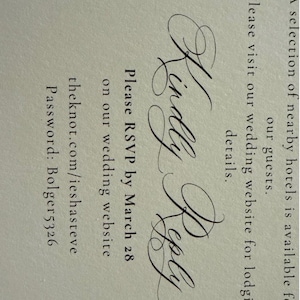 A selection of nearby hotels is available f
our guests.
lease visit our wedding website for lodgi
details.
Kindly Reply
Please RSVP by March 28
on our wedding website
theknot.com/ieshasteve
Password: Bolger5326